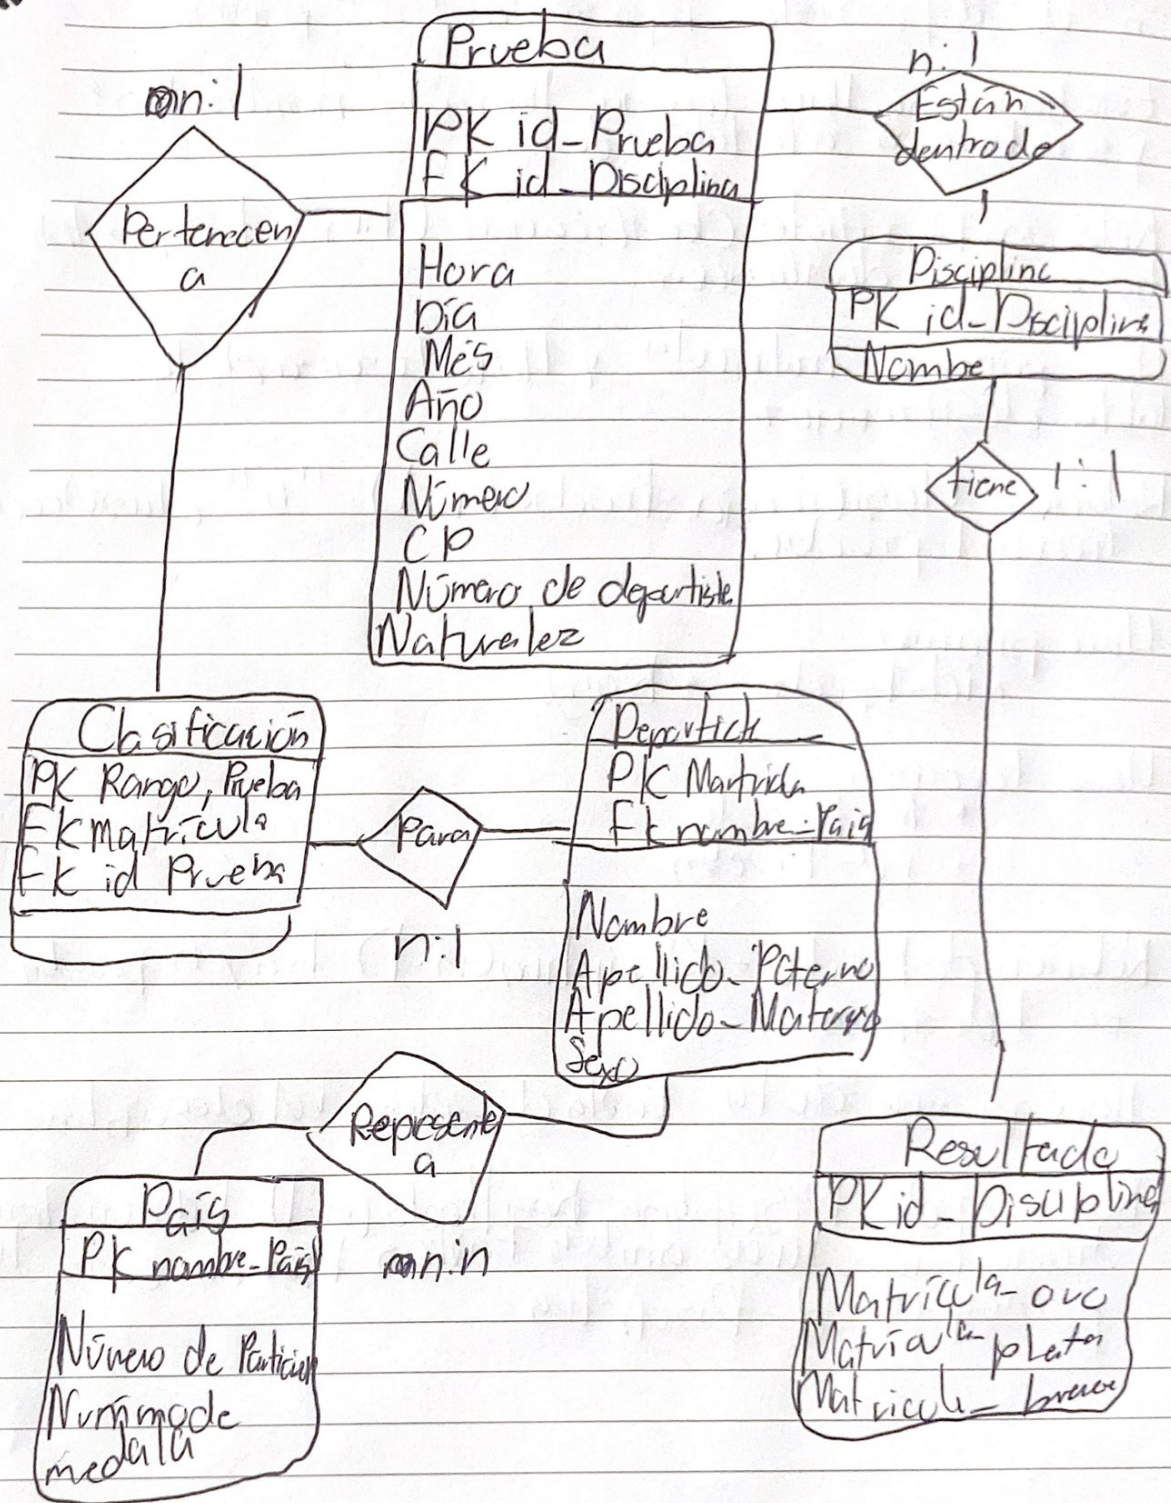 Prueba
PK id_Prueba
FK id_Disciplina
Hora
Día
Més
Año
Calle
Número
CP
Número de deportista
Naturalez
n:1
Pertenecen
a
n:1
Están
dentro de
Disciplina
PK id_Disciplina
Nombe
tiene 1:1
Clasificación
PK Rango, Prueba
FK matrícula
FK id Prueba
Para
n:1
PK
FK nombre_País
Nombre
Apellido_Paterno
Apellido_Materno
Sexo
Representa
a
n:n
País
PK nombre_País
Número de
medalla
Resultado
PK id_Disciplina
Matrícula_oro
Matrícula_plata
Matricula_bronce